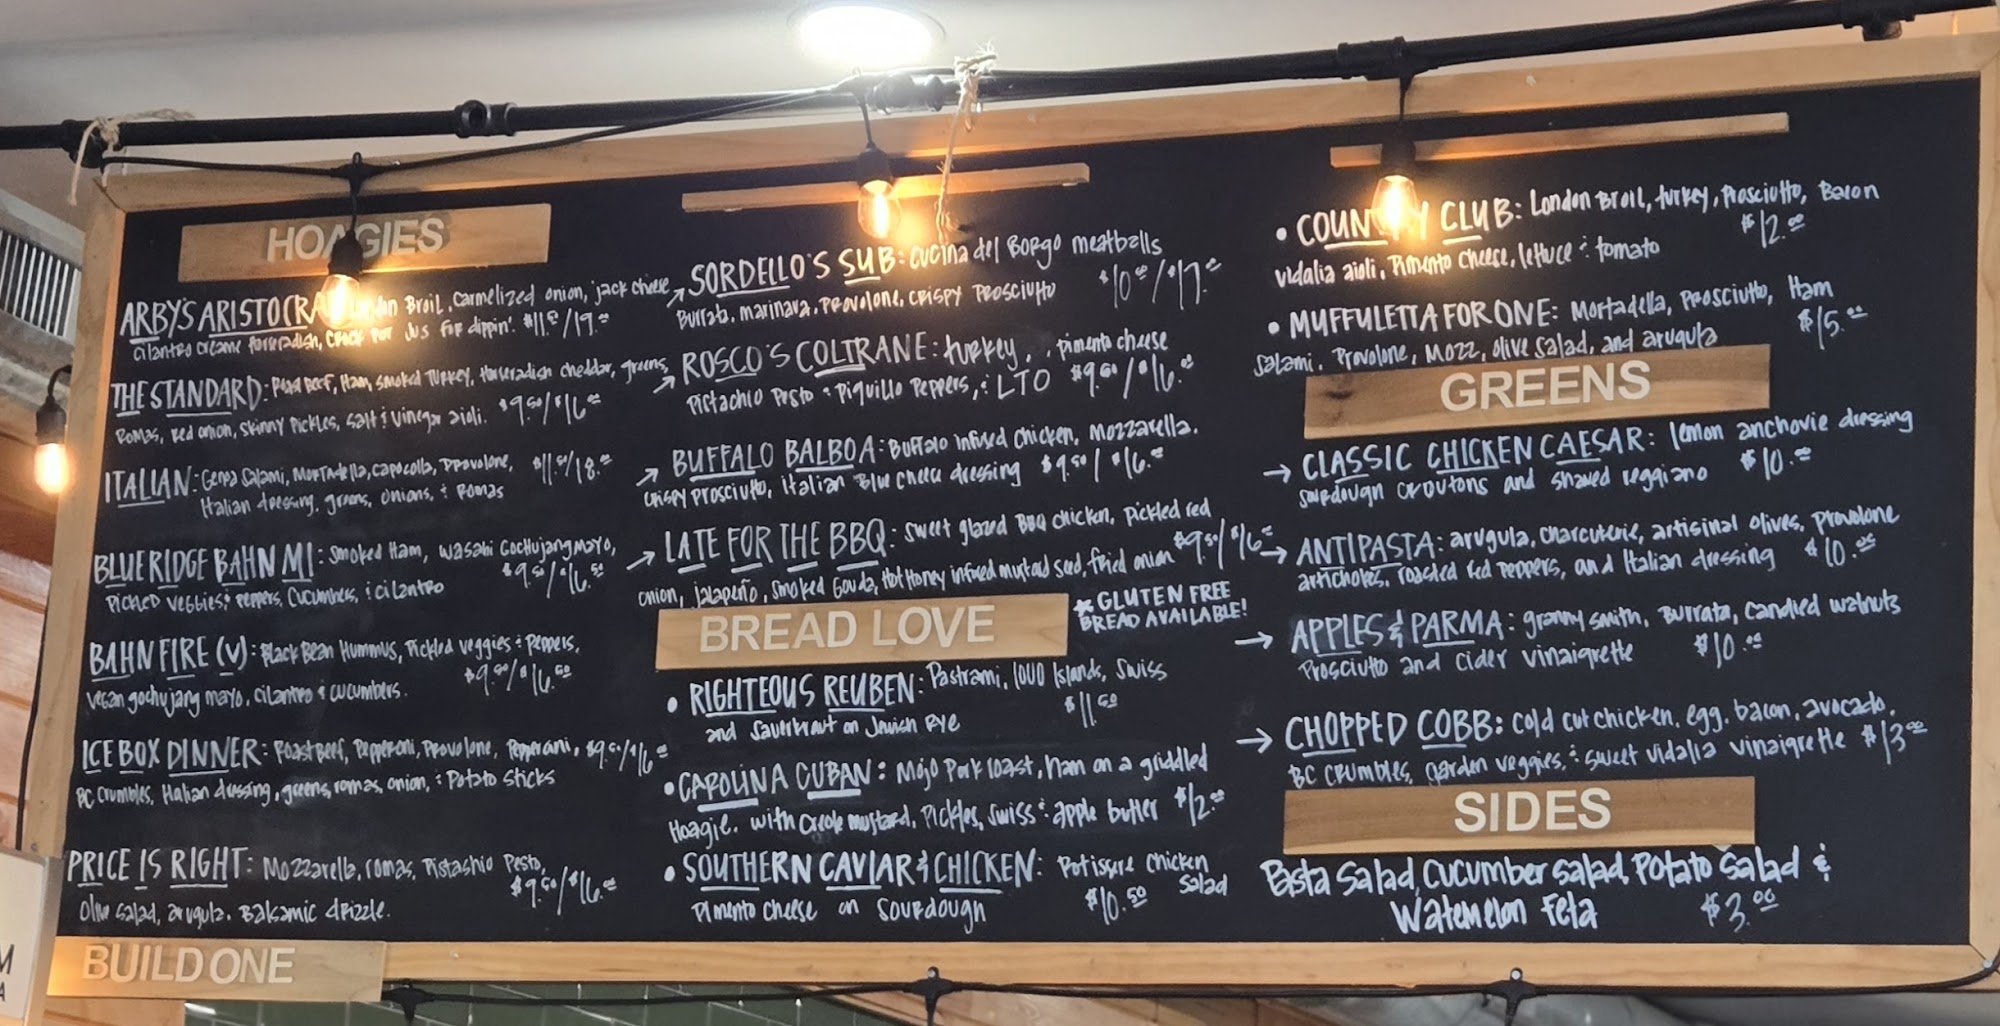 HOAGIES
ARBY'S ARISTOCRA Broil, Carmelized onion, jack cheese
cilantro creame horseradish, Crock Pot Jus For dippin'. $11.50/19.00
THE STANDARD: Roast Beef, Ham, Smoked Turkey, Horseradish cheddar, greens,
Romas, Red onion, Skinny Pickles, Salt & Vinegar aioli. $9.50/$16.00
ITALIAN: Genoa Salami, Mortadella, Capocolla, Provolone, $11.50/18.00
Italian dressing, greens, onions, & Romas
BLUERIDGE BAHN MI: Smoked Ham, Wasabi Gochujang Mayo,
Pickled Veggies & Peppers, Cucumbers, & cilantro $9.50/$16.50
BAHN FIRE (V): Black Bean Hummus, Pickled Veggies & Peppers,
Vegan gochujang mayo, cilantro & cucumbers. $9.50/$16.50
ICE BOX DINNER: Roast Beef, Pepperoni, Provolone, Pepperani, $9.50/$16.00
BC Crumbles, Italian dressing, greens, romas, onion, & Potato Sticks
PRICE IS RIGHT: Mozzarella, romas, Pistashio Pesto,
Olive Salad, arugula. Balsamic drizzle. $9.50/$16.00
BUILD ONE
SORDELLO'S SUB: Cucina del Borgo meatballs
Burrata, marinara, Provolone, Crispy Prosciutto $10.00/$17.00
ROSCO'S COLTRANE: turkey, , pimento cheese
Pistachio Pesto & Piquillo Peppers, & LTO $9.50/$16.00
BUFFALO BALBOA: Buffalo infused Chicken, Mozzarella.
Crispy Prosciutto, Italian Blue Cheese dressing $9.50/$16.00
LATE FOR THE BBQ: Sweet glazed BBQ chicken, pickled red
onion, jalapeño, Smoked Gouda, Hot Honey infused mustard seed, fried onion $9.50/$16.00
* GLUTEN FREE
BREAD AVAILABLE!
BREAD LOVE
• RIGHTEOUS REUBEN: Pastrami, 1000 Islands, Swiss
and Sauerkraut on Jewish Rye $11.50
• CAROLINA CUBAN: Mojo Pork Roast, ham on a griddled
Hoagie. with Creole mustard, Pickles, Swiss & apple butter $12.00
• SOUTHERN CAVIAR & CHICKEN: Rotissire Chicken
Salad
Pimento Cheese on Sourdough $10.50
• COUN Y CLUB: London Broil, turkey, Prosciutto, Bacon
Vidalia aioli, Pimento Cheese, lettuce & tomato $12.00
• MUFFULETTA FOR ONE: Mortadella, Prosciutto, Ham
Salami, Provolone, Mozz, Olive Salad, and arugula $15.00
GREENS
→ CLASSIC CHICKEN CAESAR: lemon anchovie dressing
sourdough croutons and shaved reggiano $10.00
→ ANTIPASTA: arugula, charcuterie, artisinal olives, Provolone
artichokes, roasted red peppers, and Italian dressing $10.00
→ APPLES & PARMA: granny smith, Burrata, candied walnuts
Prosciutto and cider vinaigrette $10.00
→ CHOPPED COBB: cold cut chicken, egg, bacon, avocado,
BC crumbles, garden veggies, & sweet vidalia vinaigrette $13.00
SIDES
Pasta Salad, Cucumber Salad, Potato Salad &
Watermelon Feta $3.00